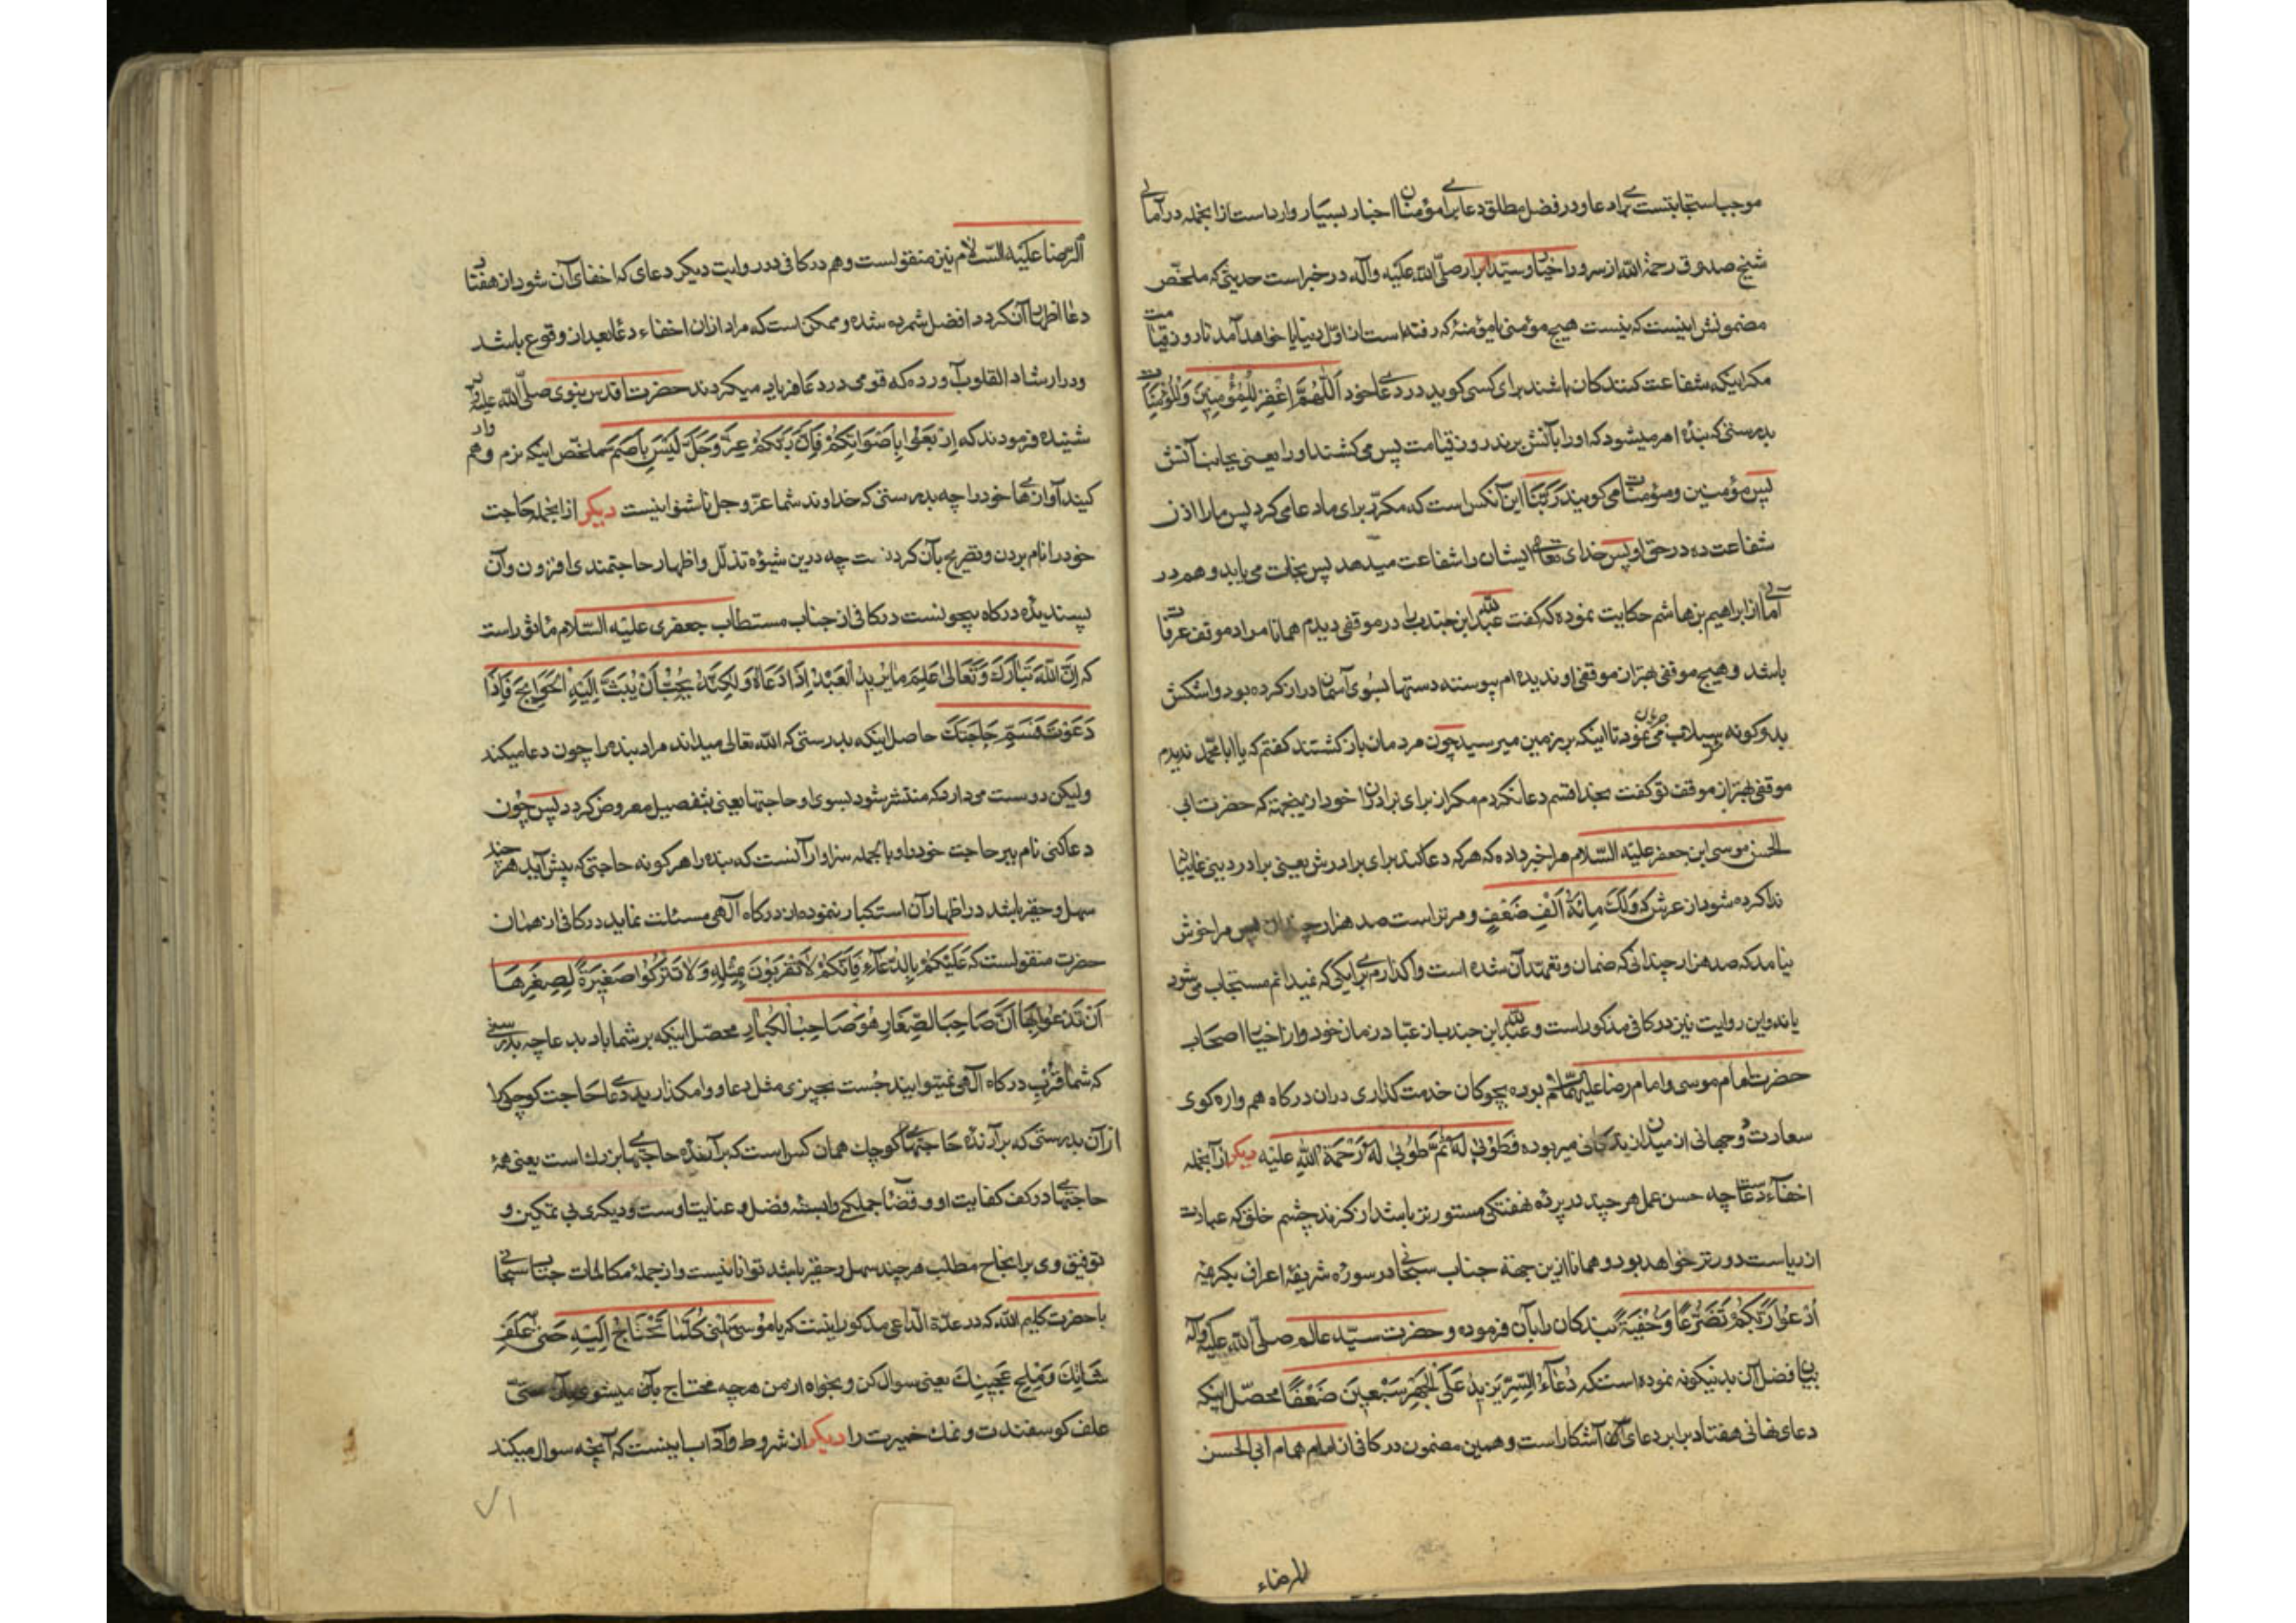 موجب استجابتست برای دعا و در فضل مطلق دعا برای مؤمنان اخبار بسیار وارد است از انجمله در آمالی
شیخ صدوق رحمة الله از سرور اخیار و سید ابرار صلی الله علیه وآله در خبر است حدیثی که ملخص
مضمونش اینست که نیست هیچ مؤمنی یا مؤمنهٔ که رفته است از اول دنیا یا خواهد آمد تا روز قیامت
مکر اینکه شفاعت کنندکان باشند برای کسی کوید در دعای خود اَللّهُمَّ اغْفِرْ لِلْمُؤْمِنِینَ وَالْمُؤْمِنَاتِ
بدرستی که بنده امر میشود که او را بآتش برند روز قیامت پس می کشند او را یعنی بجانب آتش
پس مؤمنین و مؤمنات می کویند رَبَّنَا این آنکس است که مکرر برای ما دعا می کرد پس ما را اذن
شفاعت ده در حق او پس خدای تعالی ایشان را شفاعت میدهد پس نجات می یابد و هم در
آمالی از ابراهیم بن هاشم حکایت نموده که گفت عبد الله ابن جندب را در موقفی دیدم همانا مراد موقف عرفات
باشد و هیچ موقفی بهتر از موقف او ندیده ام پیوسته دستها بسوی آسمان دراز کرده بود و اشکش
بدو کونه سیلاب می نمود تا اینکه بر زمین میرسید چون مردمان باز کشتند کفتم که یا ابا محمد ندیدم
موقفی بهتر از موقف تو کفت بخدا قسم دعا نکردم مکر از برای برادران خود ازینجهة که حضرت ابی
الحسن موسی ابن جعفر علیه السلام مرا خبر داده که هر که دعا کند برای برادرش یعنی برادر دینی غایبا
ندا کرده شود از عرش که وَلَکَ مِائَةُ اَلْفِ ضَعْفٍ و مر تراست صد هزار پس مرا خوش
نیامد که صد هزار چندانی که ضمان و تعهد آن شده است واکذارم برای یکی که نمیدانم مستجاب می شود
یا نه و این روایت نیز در کافی مذکور است و عبد الله ابن جندب از عباد زمان خود و از اخیار اصحاب
حضرت امام موسی و امام رضا علیهما السلام بوده بچوکان خدمت کذاری دران درکاه هم واره کوی
سعادت دوجهانی از میدان زندکانی میربوده فَطُوْبی لَهُ ثُمَّ طُوْبی لَهُ رَحْمَةُ اللهِ علیه دیکر از آنجمله
اخفاء دعاست چه حسن عمل هر چند در پرده نهفتکی مستور تر باشد از کزند چشم خلق که عبارت
از ریاست دورتر خواهد بود و همانا ازین جهة جناب سبحانی در سورهٔ شریفهٔ اعراف بکریمهٔ
اُدْعُوا رَبَّکُمْ تَضَرُّعًا وَخُفْیَةً بندکان را بآن فرموده و حضرت سید عالم صلی الله علیه وآله
بیان فضل آن بدینکونه نموده است که دُعَاءُ السِّرِّ یَزِیدُ عَلَی الْجَهْرِ سَبْعِینَ ضَعْفًا محصل اینکه
دعای نهانی هفتاد برابر دعای آشکار است و همین مضمون در کافی از امام همام ابی الحسن
الرضاء
الرضا علیه السلام نیز منقولست و هم در کافی در روایت دیکر دعای که اخفای آن شود از هفتاد
دعا اظهار آن کردد افضل شمرده شده و ممکن است که مراد ازان اخفاء دعا بعد از وقوع باشد
و در ارشاد القلوب آورده که قومی در دعا فریاد میکردند حضرت اقدس نبوی صلی الله علیه وآله
شنیده فرمودند که اِرْبَعُوا بِاَصْوَاتِکُمْ فَاِنَّ رَبَّکُمْ عَزَّ وَجَلَّ لَیْسَ بِاَصَمَّ ملخص اینکه نرم و هموار
کنید آوازهای خود را چه بدرستی که خداوند شما عز وجل ناشنوا نیست دیکر از انجمله حاجت
خود را نام بردن و تصریح بآن کردنست چه درین شیوه تذلل و اظهار حاجتمندی افزون و آن
پسندیدهٔ درکاه بیچونست در کافی از جناب مستطاب جعفری علیه السلام ماثور است
که اِنَّ اللهَ تَبَارَکَ وَتَعَالی عَلِمَ مَا یُرِیدُ الْعَبْدُ اِذَا دَعَاهُ وَلکِنَّهُ یُحِبُّ اَنْ یُبَثَّ اِلَیْهِ الْحَوَایِجَ فَاِذَا
دَعَوْتَ فَسَمِّ حَاجَتَکَ حاصل اینکه بدرستی که الله تعالی میداند مراد بنده را چون دعا میکند
ولیکن دوست میدارد که منتشر شود بسوی او حاجتها یعنی بتفصیل معروض کردد پس چون
دعا کنی نام ببر حاجت خود را و بالجمله سزاوار آنست که بنده را هر کونه حاجتی که پیش آید هر چند
سهل و حقیر باشد در اظهار آن استکبار ننموده از درکاه آلهی مسئلت نماید در کافی از همان
حضرت منقولست که عَلَیْکُمْ بِالدُّعَاءِ فَاِنَّکُمْ لَا تَقْرَبُوْنَ بِمِثْلِهِ وَلَا تَتْرُکُوا صَغِیرَةً لِصِغَرِهَا
اَنْ تَدْعُوا بِهَا اَنَّ صَاحِبَ الصِّغَارِ هُوَ صَاحِبُ الْکِبَارِ محصل اینکه بر شما باد بدعا چه بدرستی
که شما قرب درکاه آلهی نمیتوانید جست بچیزی مثل دعا و وامکذارید دعای حاجت کوچک را
از آن بدرستی که برآرندهٔ حاجتهای کوچک همان کس است که برآرندهٔ حاجتهای بزرک است یعنی همهٔ
حاجتها در کف کفایت او و قضای جملکی وابستهٔ فضل و عنایت اوست و دیکری بی تمکین و
توفیق وی بر انجاح مطلب هر چند سهل و حقیر باشد توانا نیست و از جملهٔ مکالمات جناب سبحانی
با حضرت کلیم الله که در عدة الداعی مذکور اینست که یَا مُوْسی سَلْنِی کُلَّمَا تَحْتَاجُ اِلَیْهِ حَتّی عَلَفَ
شَاتِکَ وَمِلْحَ عَجِینِکَ یعنی سوال کن و بخواه از من هرچه محتاج بآن میشوی حتی
علف کوسفندت و نمک خمیرت را دیکر از شروط و آداب اینست که آنچه سوال میکند
۷۱